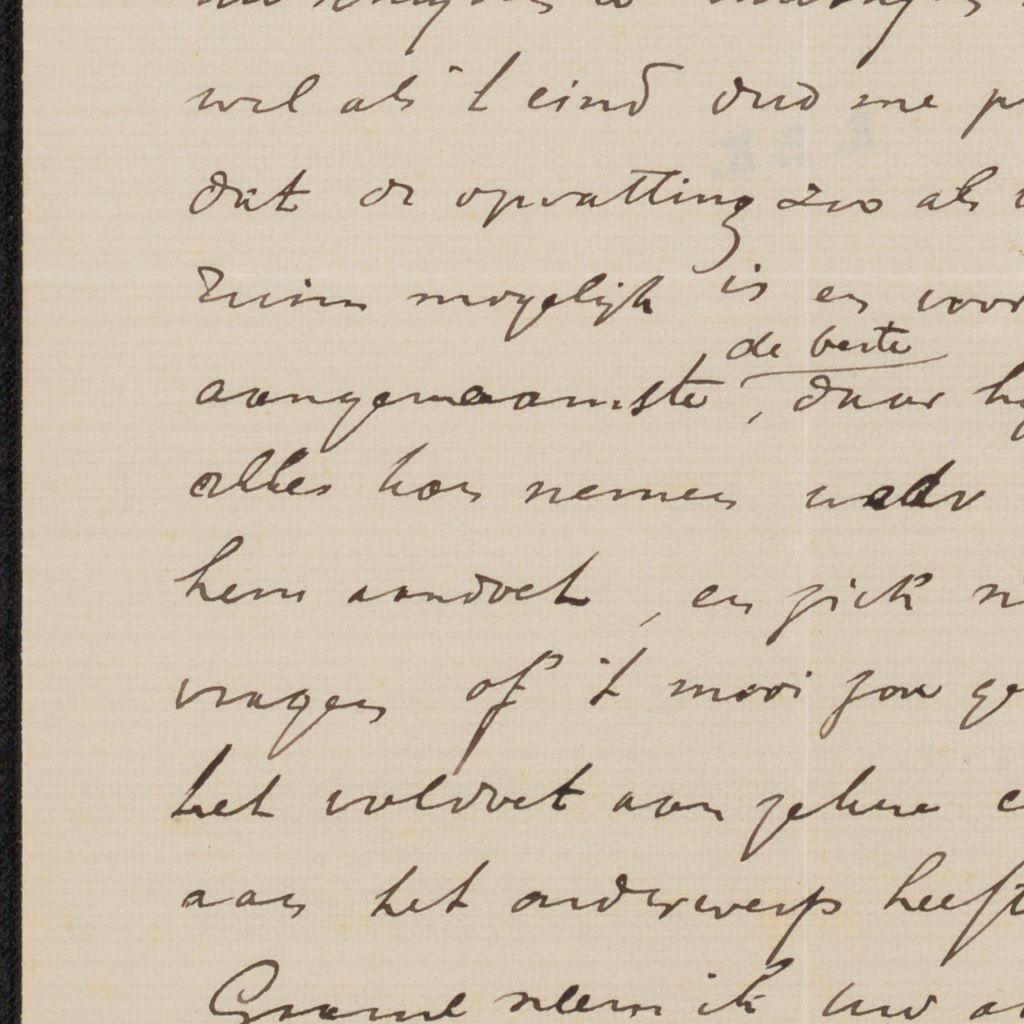 wel als 't eind dud me
dat de opvatting zoo als
Ruim mogelijk is en voor
de beste
aangenaamste, daar
alles kan nemen
hem aandoet, en zich
vragen of 't mooi zou
het voldoet aan zekere
aan het onderwerp heeft
Gaarne neem ik uw